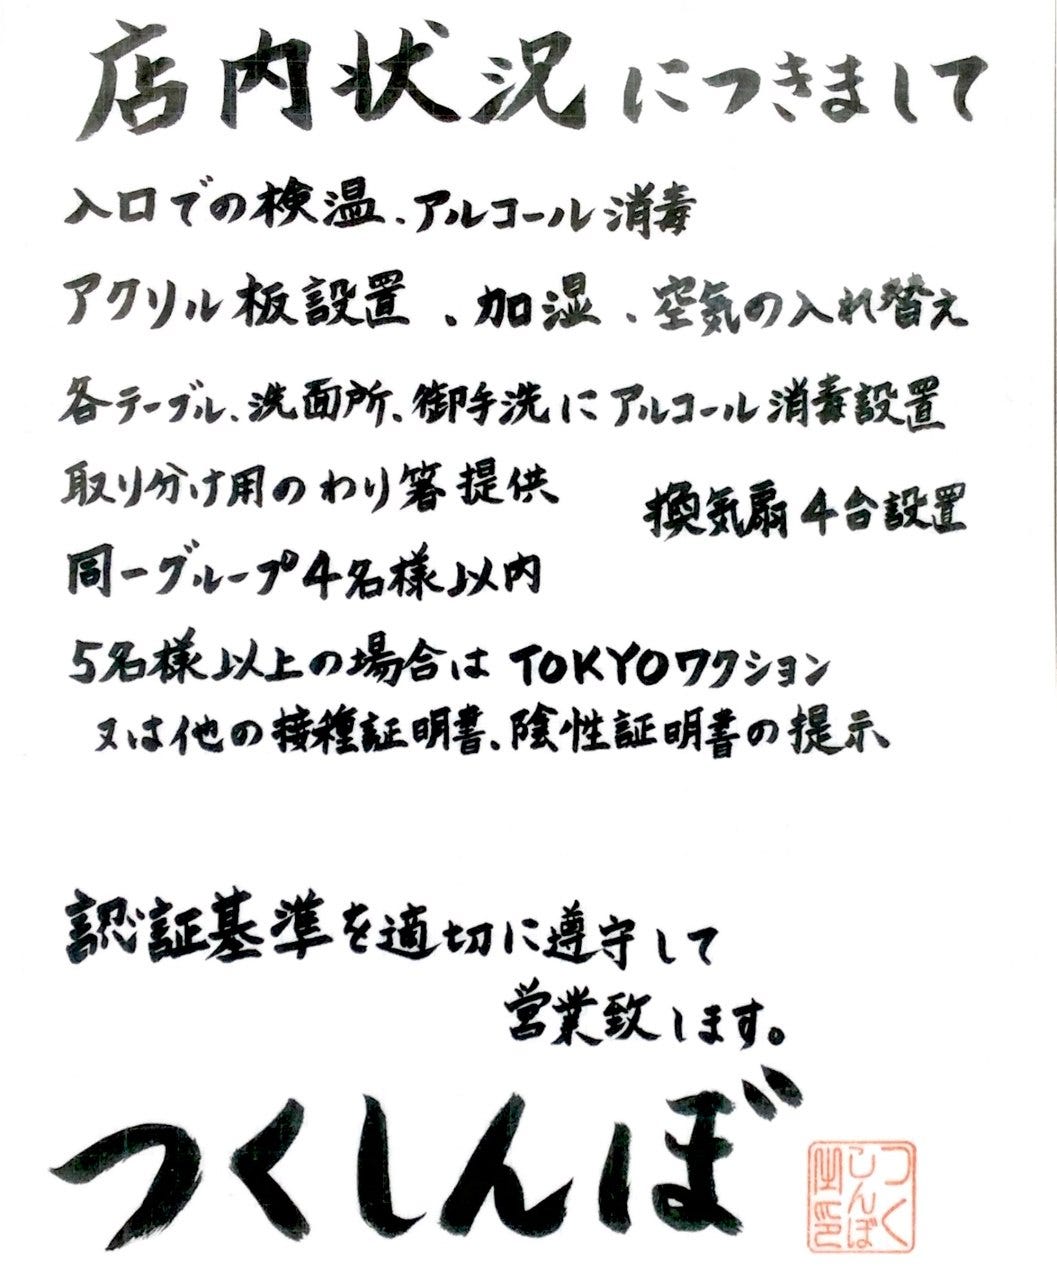 店内状況につきまして
入口での検温、アルコール消毒
アクリル板設置、加湿、空気の入れ替え
各テーブル、洗面所、御手洗にアルコール消毒設置
取り分け用のわり箸提供
換気扇4台設置
同一グループ4名様以内
5名様以上の場合はTOKYOワクション
又は他の接種証明書、陰性証明書の提示
認証基準を適切に遵守して
営業致します。
つくしんぼ
つく
しんぼ
之印